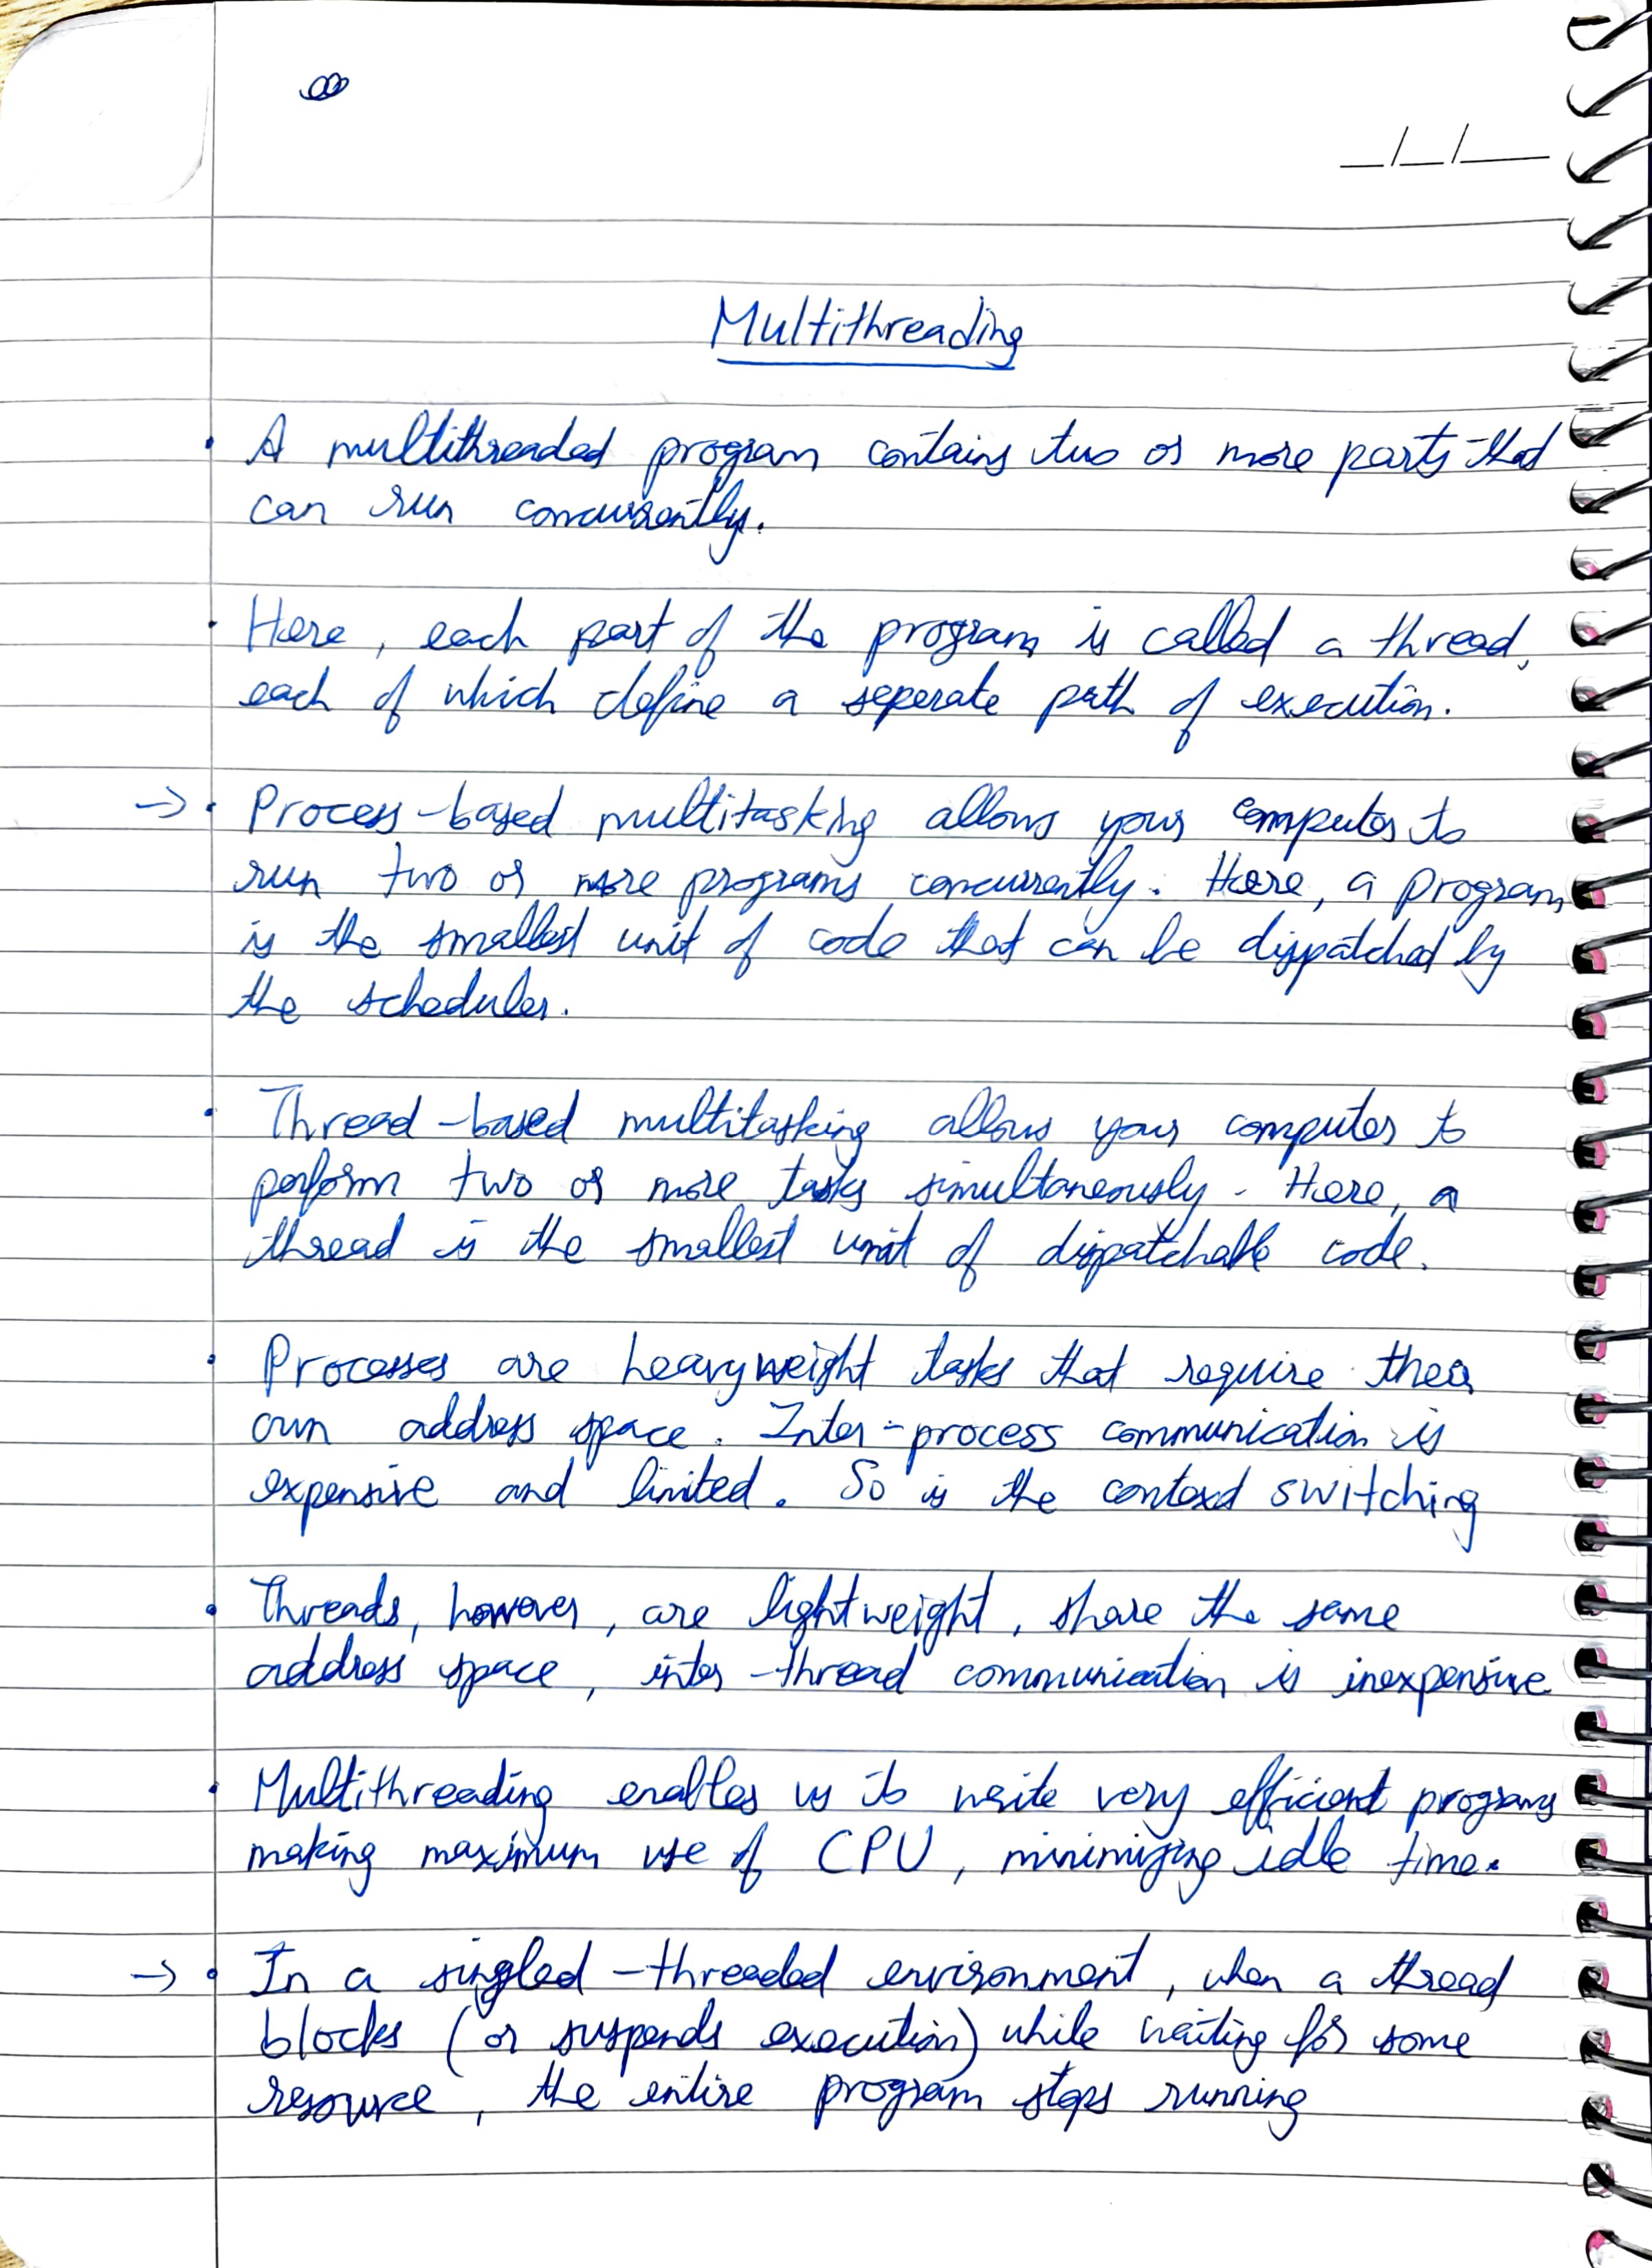 Multithreading
• A multithreaded program contains two or more parts that
can run concurrently.
• Here, each part of the program is called a thread,
each of which define a seperate path of execution.
→ • Process-based multitasking allows your computer to
run two or more programs concurrently. Here, a program
is the smallest unit of code that can be dispatched by
the scheduler.
• Thread-based multitasking allows your computer to
perform two or more tasks simultaneously. Here, a
thread is the smallest unit of dispatchable code.
• Processes are heavyweight tasks that require their
own address space. Inter-process communication is
expensive and limited. So is the context switching
• Threads, however, are lightweight, share the same
address space, inter-thread communication is inexpensive
• Multithreading enables us to write very efficient programs
making maximum use of CPU, minimizing idle time.
→ • In a singled-threaded environment, when a thread
blocks (or suspends execution) while waiting for some
resource, the entire program stops running